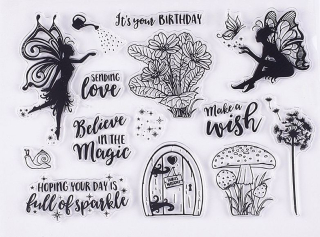 It's your BIRTHDAY
SENDING
love
Make a
wish
Believe
IN THE
Magic
HOPING YOUR DAY IS
full of sparkle